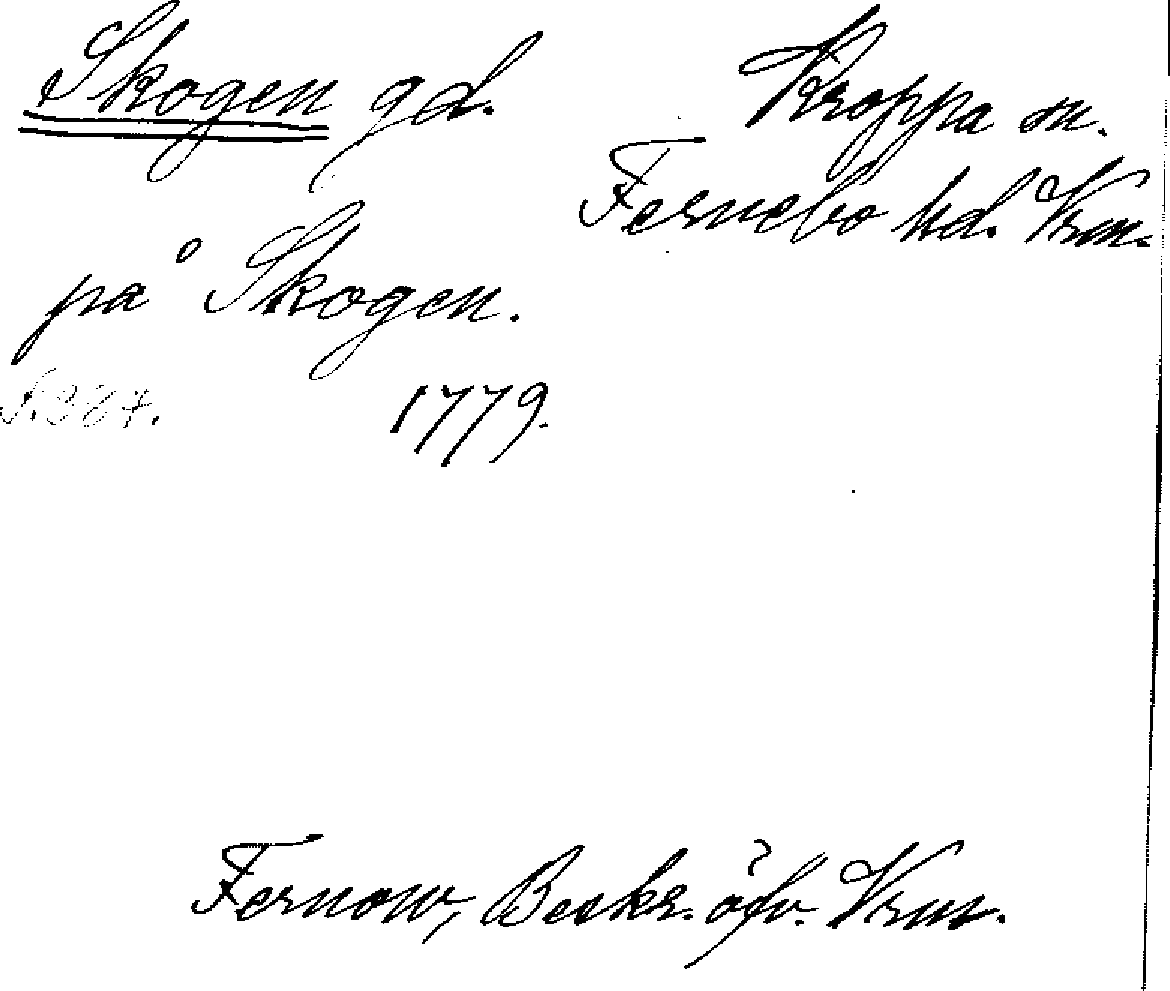 Skogen gd.
Kroppa sn.
Fernebo hd. Vrm.
på Skogen.
S. 387. 1779.
Fernow, Beskr. öfv. Vrm.